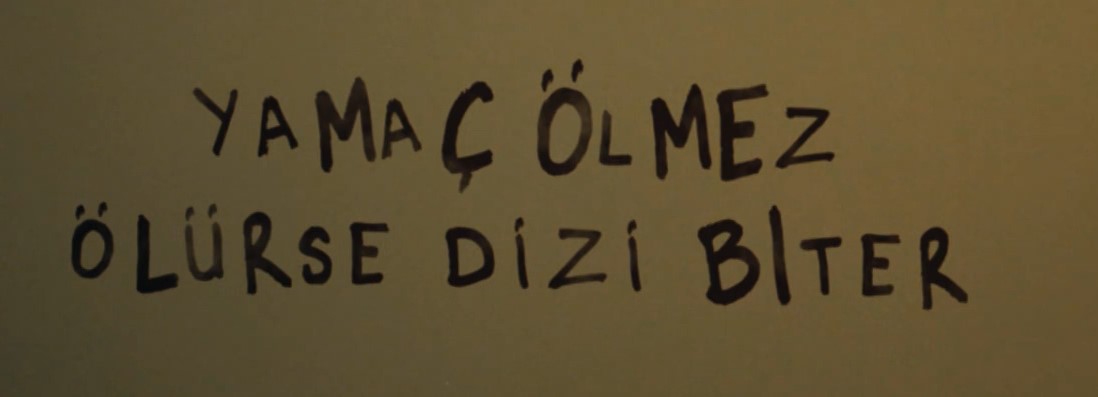 YAMAÇ ÖLMEZ
ÖLÜRSE DİZİ BITER